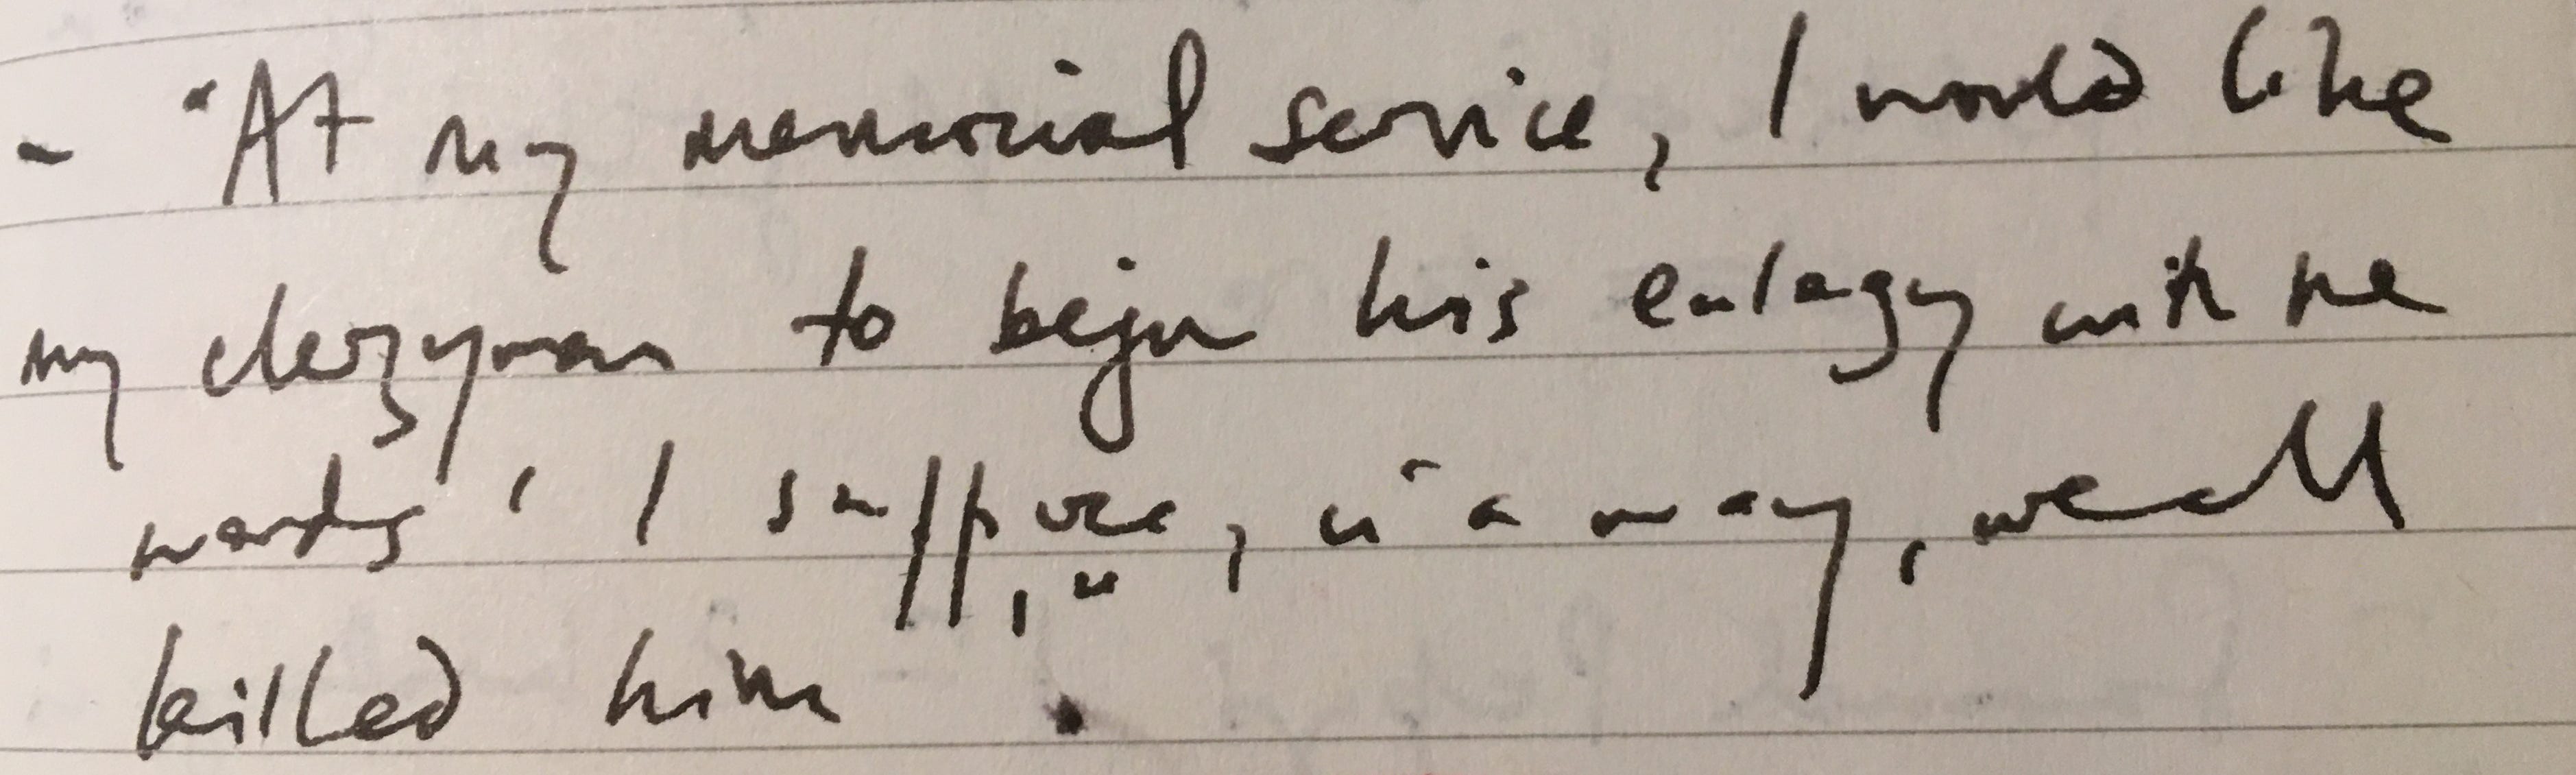 - "At my memorial service, I would like
my clergyman to begin his eulogy with the
words ' I suppose, in a way, we all
killed him